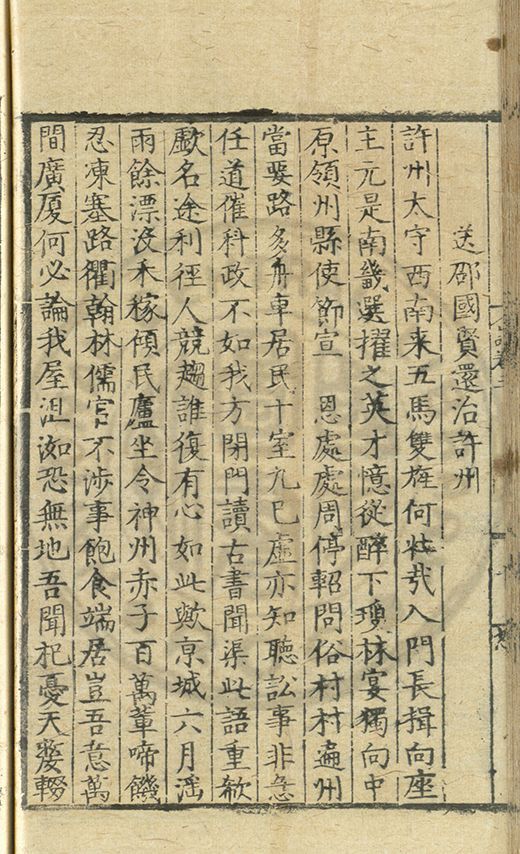 送邵國賢還治許州
許州太守西南来五馬雙旌何壮㢤入門長揖向座
主元是南畿選擢之英才憶從醉下瓊林宴獨向中
原領州縣使節宣　恩處處周停軺問俗村村遍州
當要路多舟車居民十室九已虛亦知聽訟事非急
任道催科政不如我方閉門讀古書聞渠此語重欷
歔名途利徑人競趨誰復有心如此歟京城六月滛
雨餘漂没禾稼傾民廬坐令神州赤子百萬軰啼饑
忍凍塞路衢翰林儒官不涉事飽食端居豈吾意萬
間廣厦何必論我屋沮洳恐無地吾聞杞憂天嫠輟